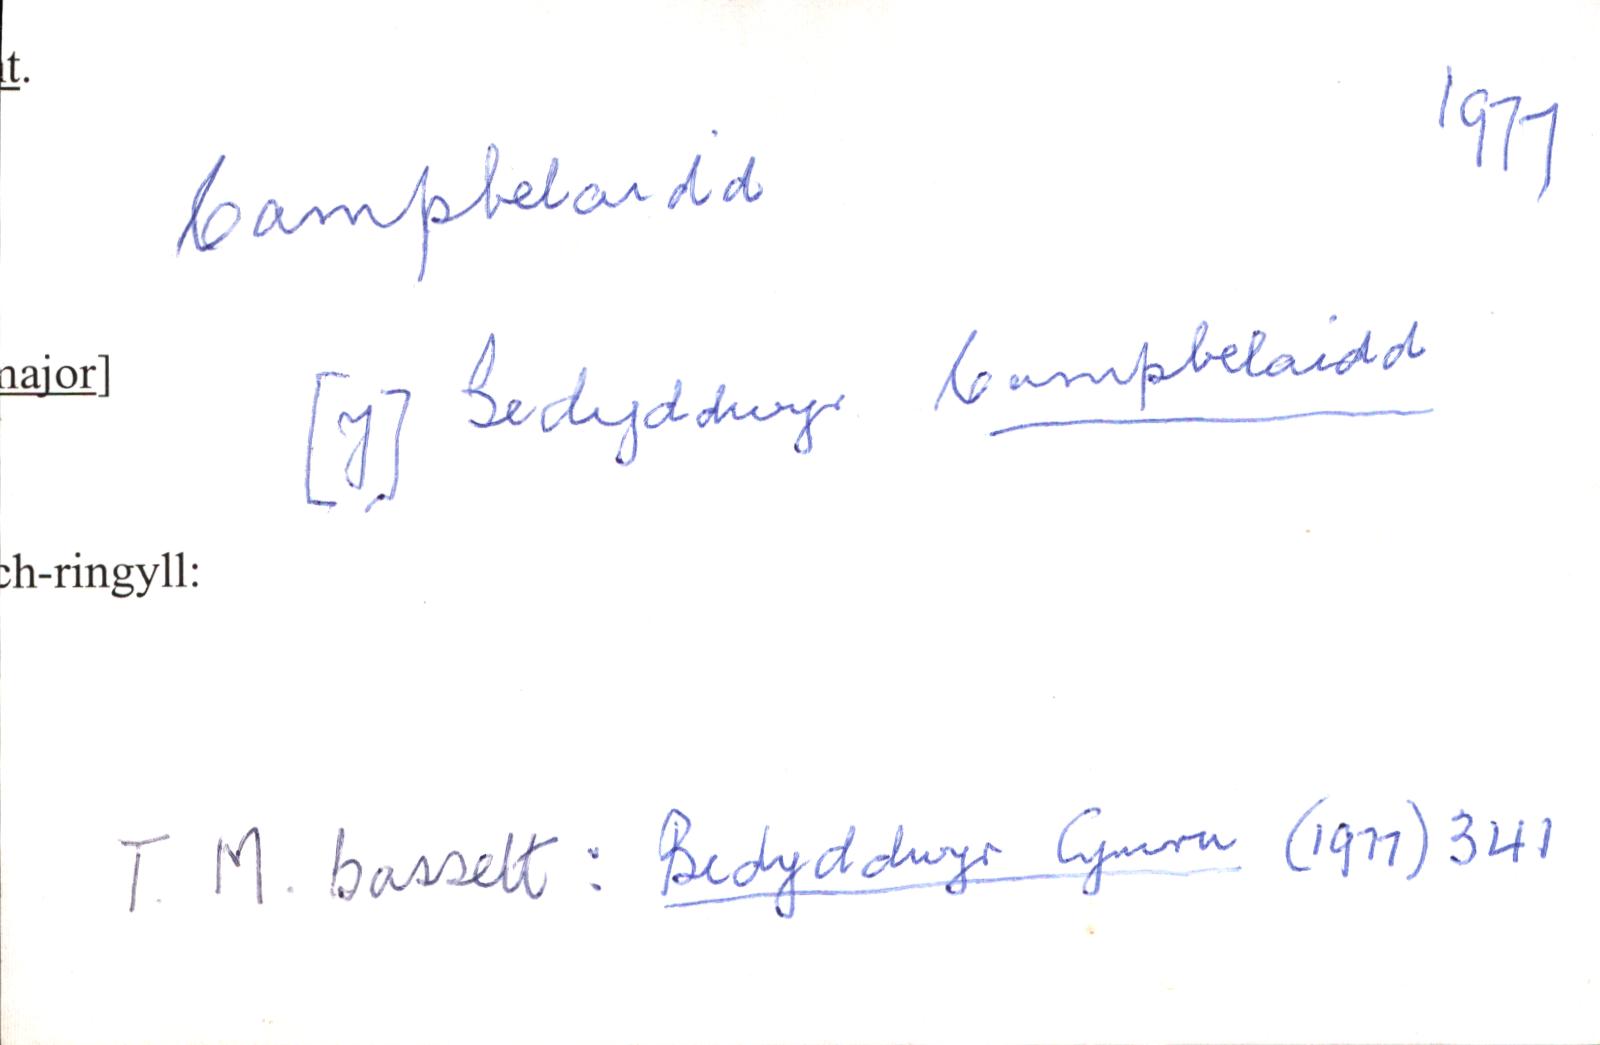 t.
1977
Campbelaidd
major]
[y] Bedyddwyr Campbelaidd
ch-ringyll:
T. M. Bassett: Bedyddwyr Cymru (1977) 341